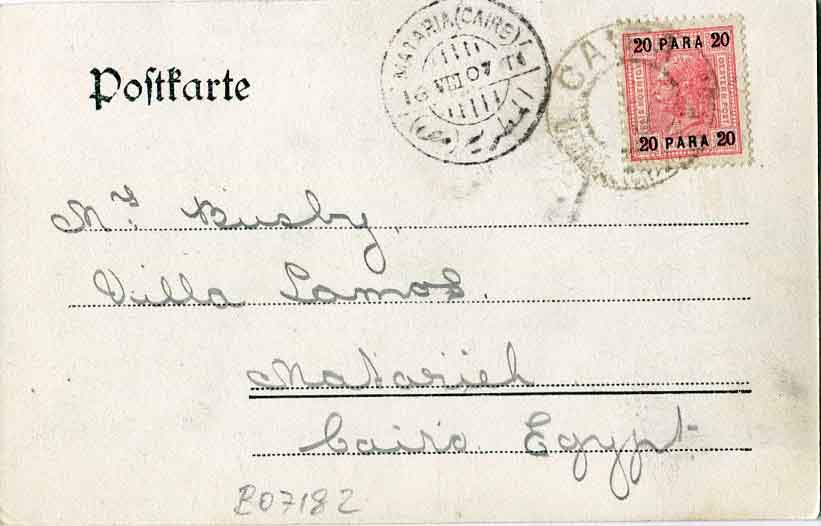 Postkarte
MATARIA (CAIRO)
VIII 07
20 PARA 20
20 PARA 20
CAN
Mr. Busby,
Villa Lamos.
Matarieh
Cairo Egypt
B07182